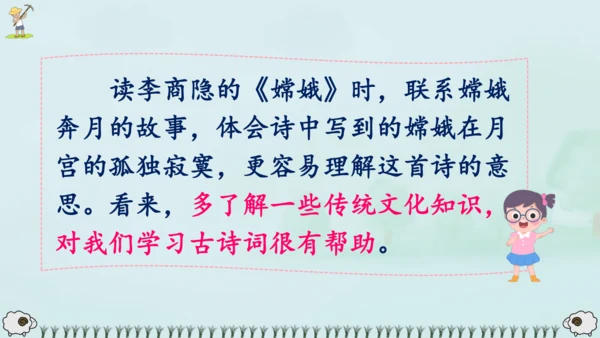 读李商隐的《嫦娥》时，联系嫦娥
奔月的故事，体会诗中写到的嫦娥在月
宫的孤独寂寞，更容易理解这首诗的意
思。看来，多了解一些传统文化知识，
对我们学习古诗词很有帮助。